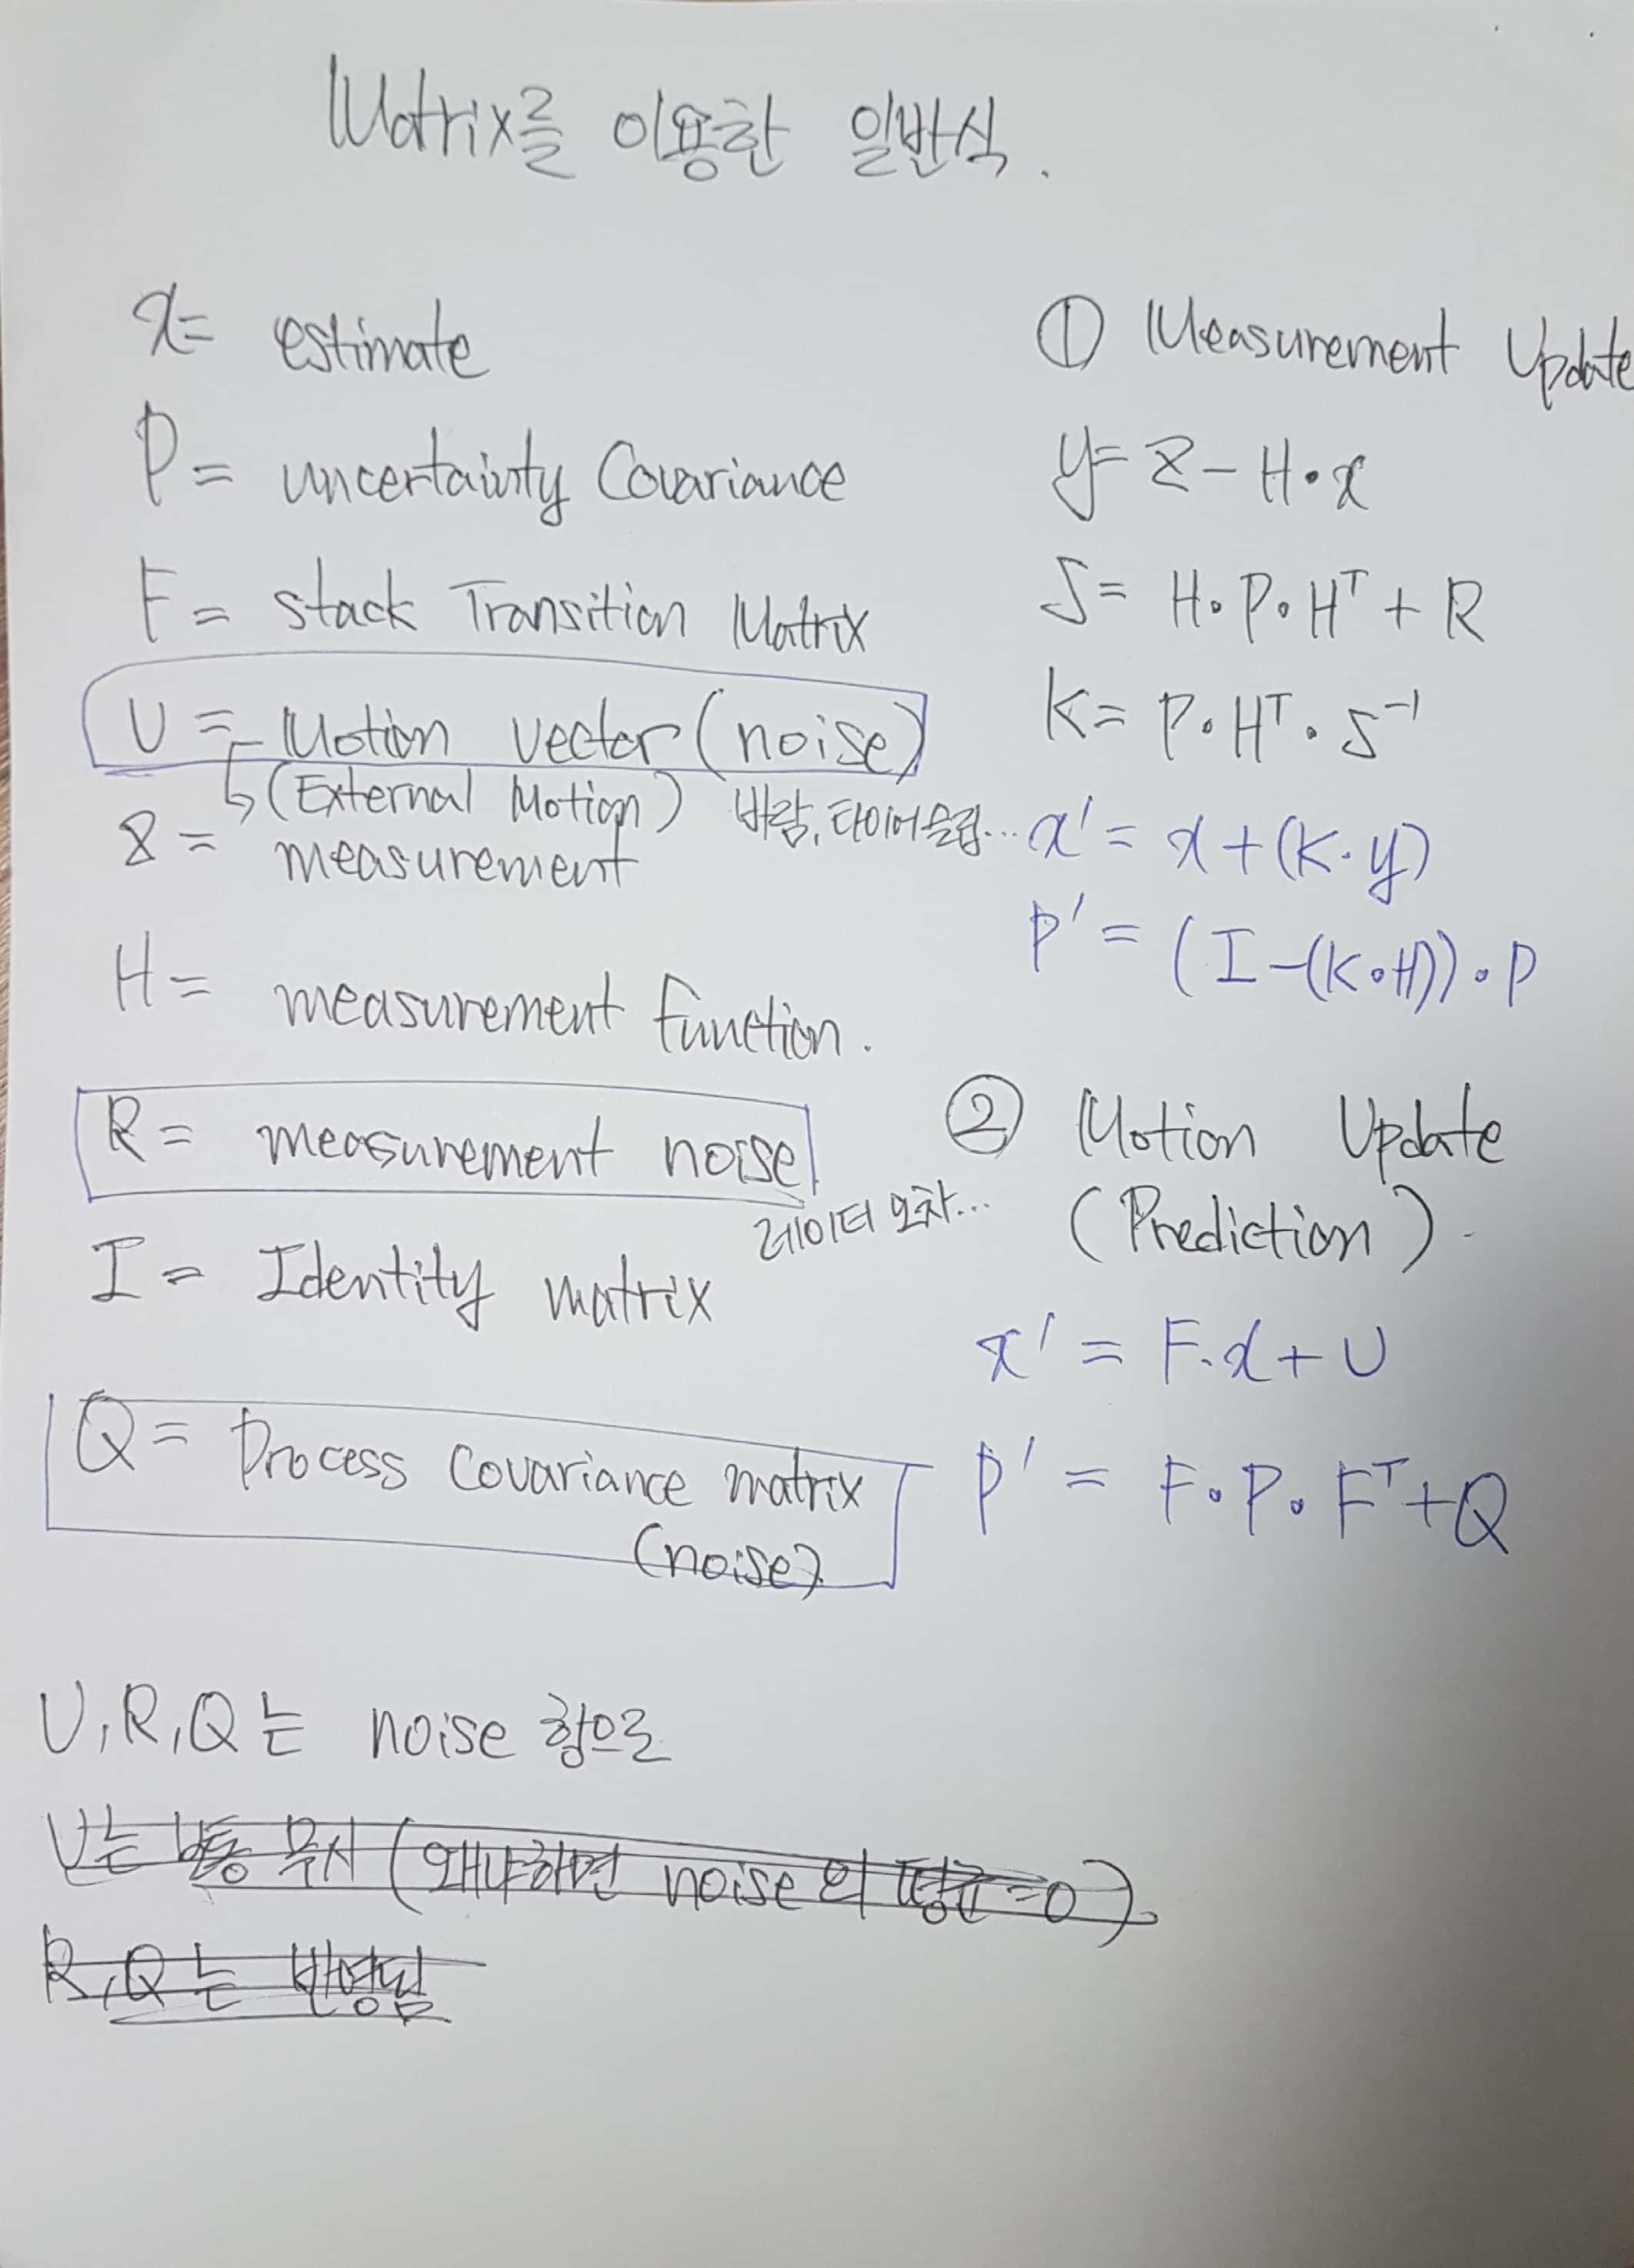 Matrix를 이용한 일반식.
x= estimate
P= uncertainty Covariance
F= stack Transition Matrix
U= Motion vector(noise)
↳(External Motion) 바람, 타이어슬립...
z= measurement
H= measurement function.
R= measurement noise
레이더 오차...
I= Identity matrix
Q= Process Covariance matrix
(noise)
① Measurement Update
y= z - H·x
S= H·P·Hᵀ + R
K= P·Hᵀ·S⁻¹
x' = x+(K·y)
P' = (I-(K·H))·P
② Motion Update
(Prediction).
x' = F·x+U
P' = F·P·Fᵀ+Q
U,R,Q는 noise 항으로
U는 보통 무시 (왜냐하면 noise의 평균=0).
R,Q는 반영됨